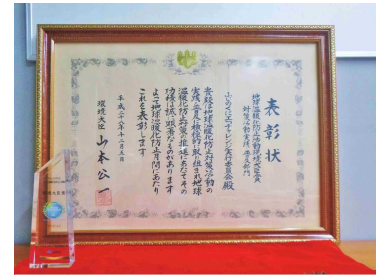 表彰状
地球温暖化防止活動環境大臣表彰
対策活動実践・普及部門
実行委員会 殿
貴殿は地球温暖化防止対策活動の
実践・普及に積極的に取り組まれ地球
温暖化防止対策の推進にあたりその
功績は誠に顕著なものがあります
よって地球温暖化防止月間にあたり
これを表彰します
平成二十八年十二月五日
環境大臣 山本公一